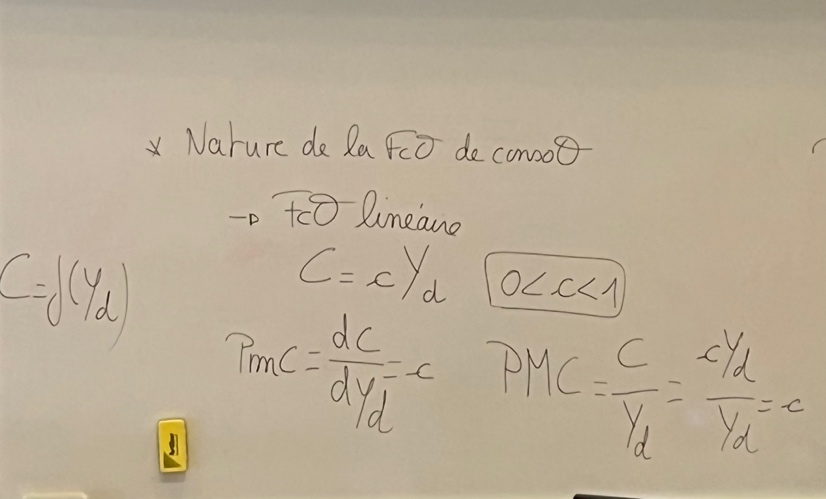 * Nature de la FcO de consoO
→ FcO linéaire
C = f(Yd)
C = cYd 0 < c < 1
PmC = dC/dYd = c PMC = C/Yd = cYd/Yd = c